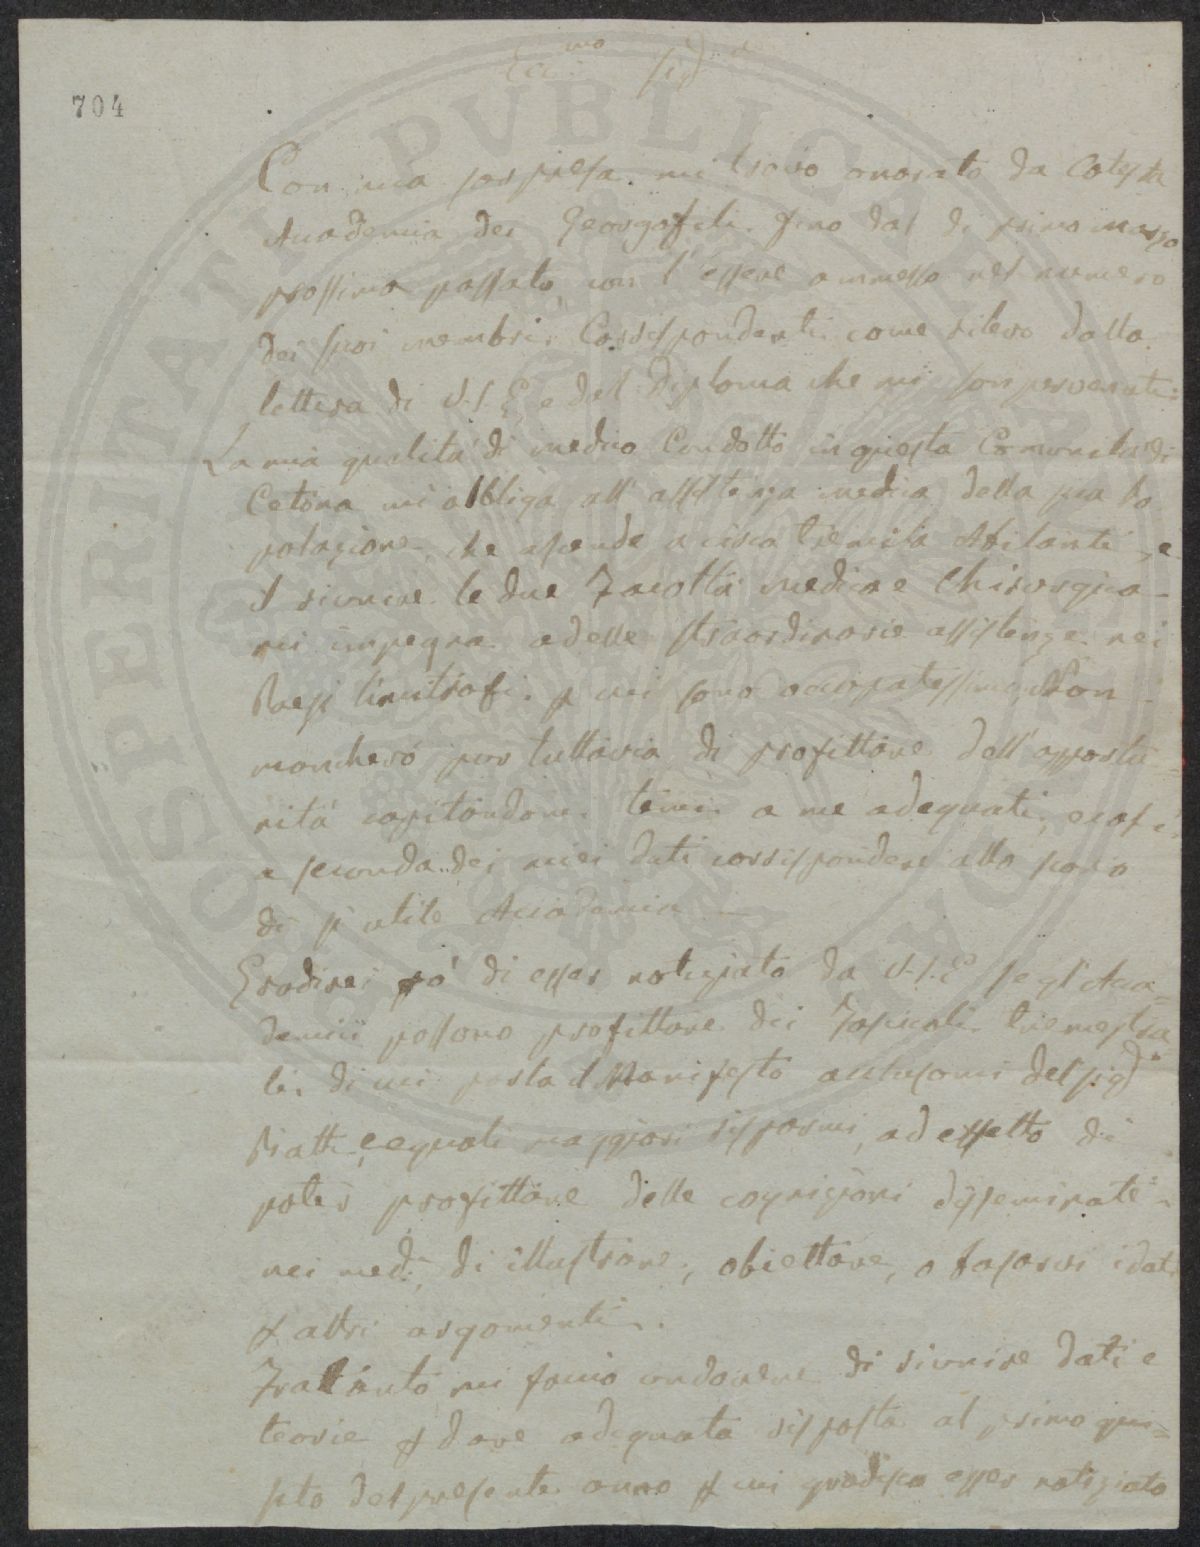 Ecc.mo Sig.e
704
Con mia sorpresa mi trovo onorato da Cotesta
Accademia dei Georgofili fino dal di primo marzo
prossimo passato, con l'essere ammesso nel numero
dei suoi membri Corrispondenti come rilevo dalla
lettera di V.S.E. e del Diploma che mi son pervenuti:
La mia qualità di medico Condotto in questa Comunità di
Cetona mi obbliga all'assistenza medica della sua Po
polazione, che ascende a circa tremila Abitanti, e
il riunire le due Facoltà medica e Chirurgica
mi impegna a delle straordinarie assistenze nei
Paesi limitrofi. p cui sono occupatissimo. Non
mancherò pur tuttavia di profittare dell'opportu=
nità capitandomi temi a me adequati, e così
a seconda dei miei dati corrispondere allo scopo
di sì utile Accademia
Gradirei pò di esser notiziato da V.S.E. se gl'Acca=
demici possono profittare dei Fascicoli trimestra
li di cui porta il Manifesto acclusomi del Sig.r
Piatti, e equali maggiori risparmi, ad effetto di
poter profittare delle cognizioni disseminate
nei med.i, di illustrare, obiettare, o
p altri argomenti.
Frattanto mi faccio un dovere di riunire dati e
teorie p dare adequata risposta al primo que=
sito del presente anno p cui gradisco esser notiziato